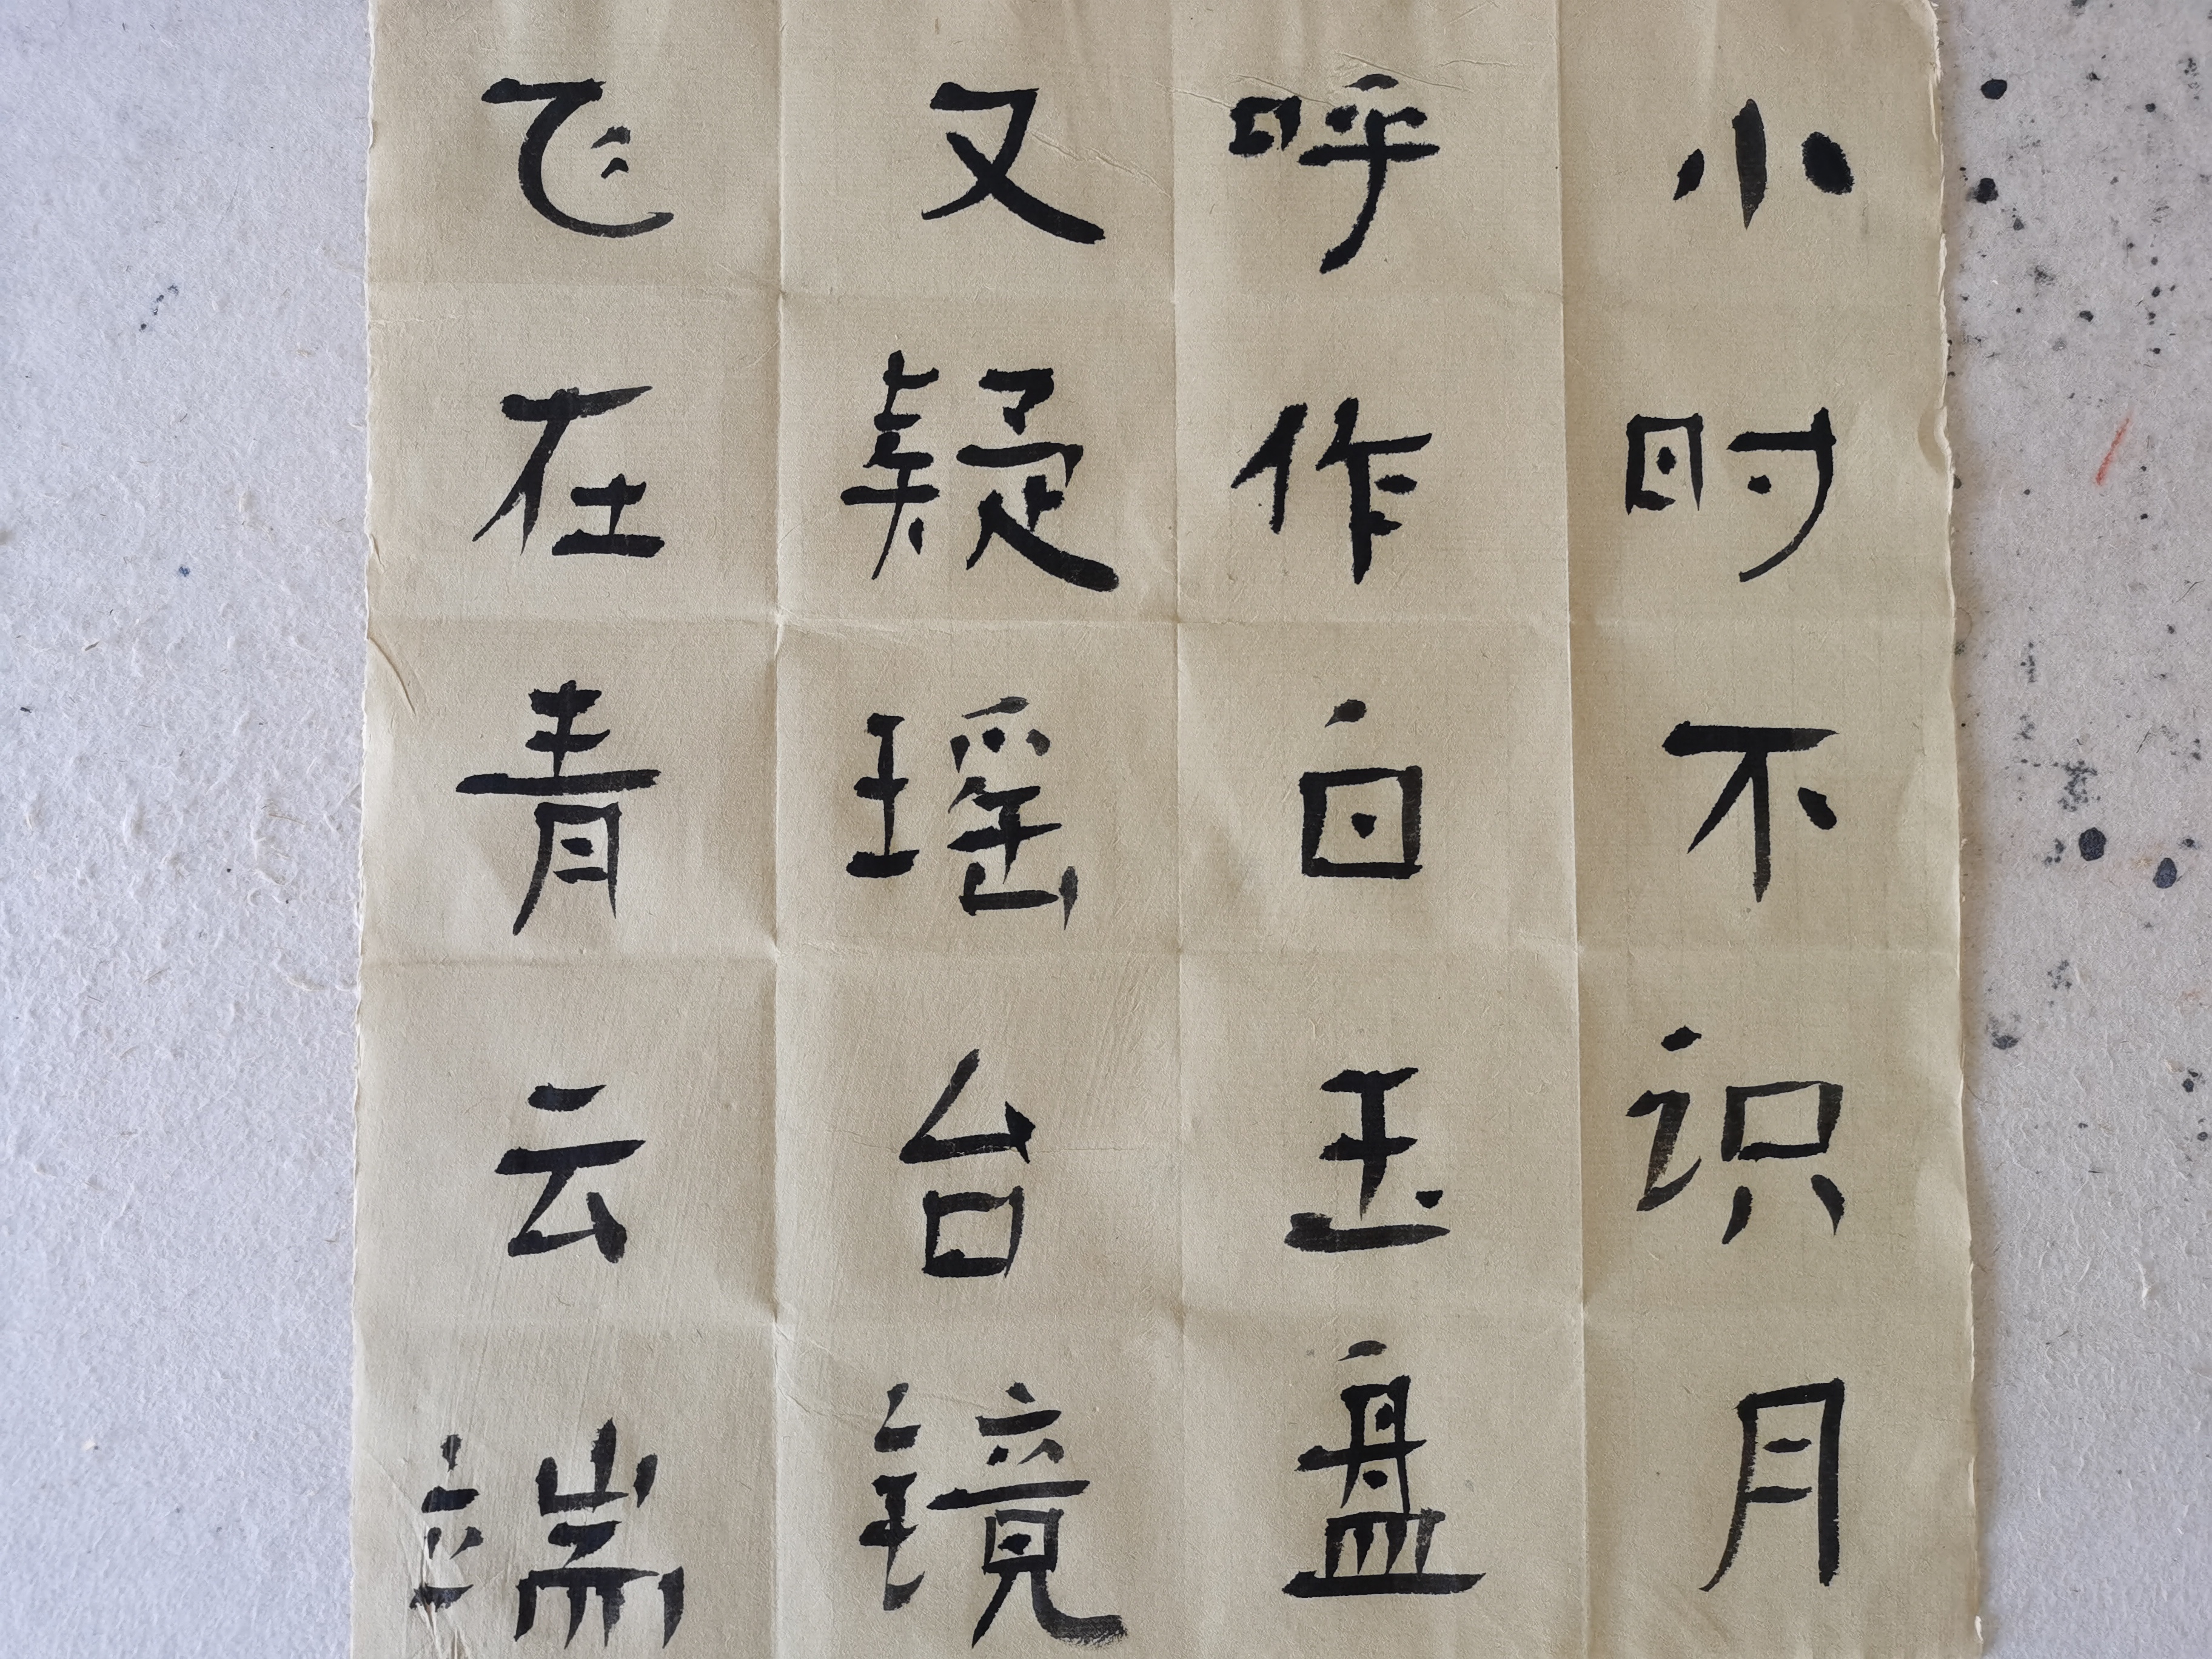 小时不识月
呼作白玉盘
又疑瑶台镜
飞在青云端